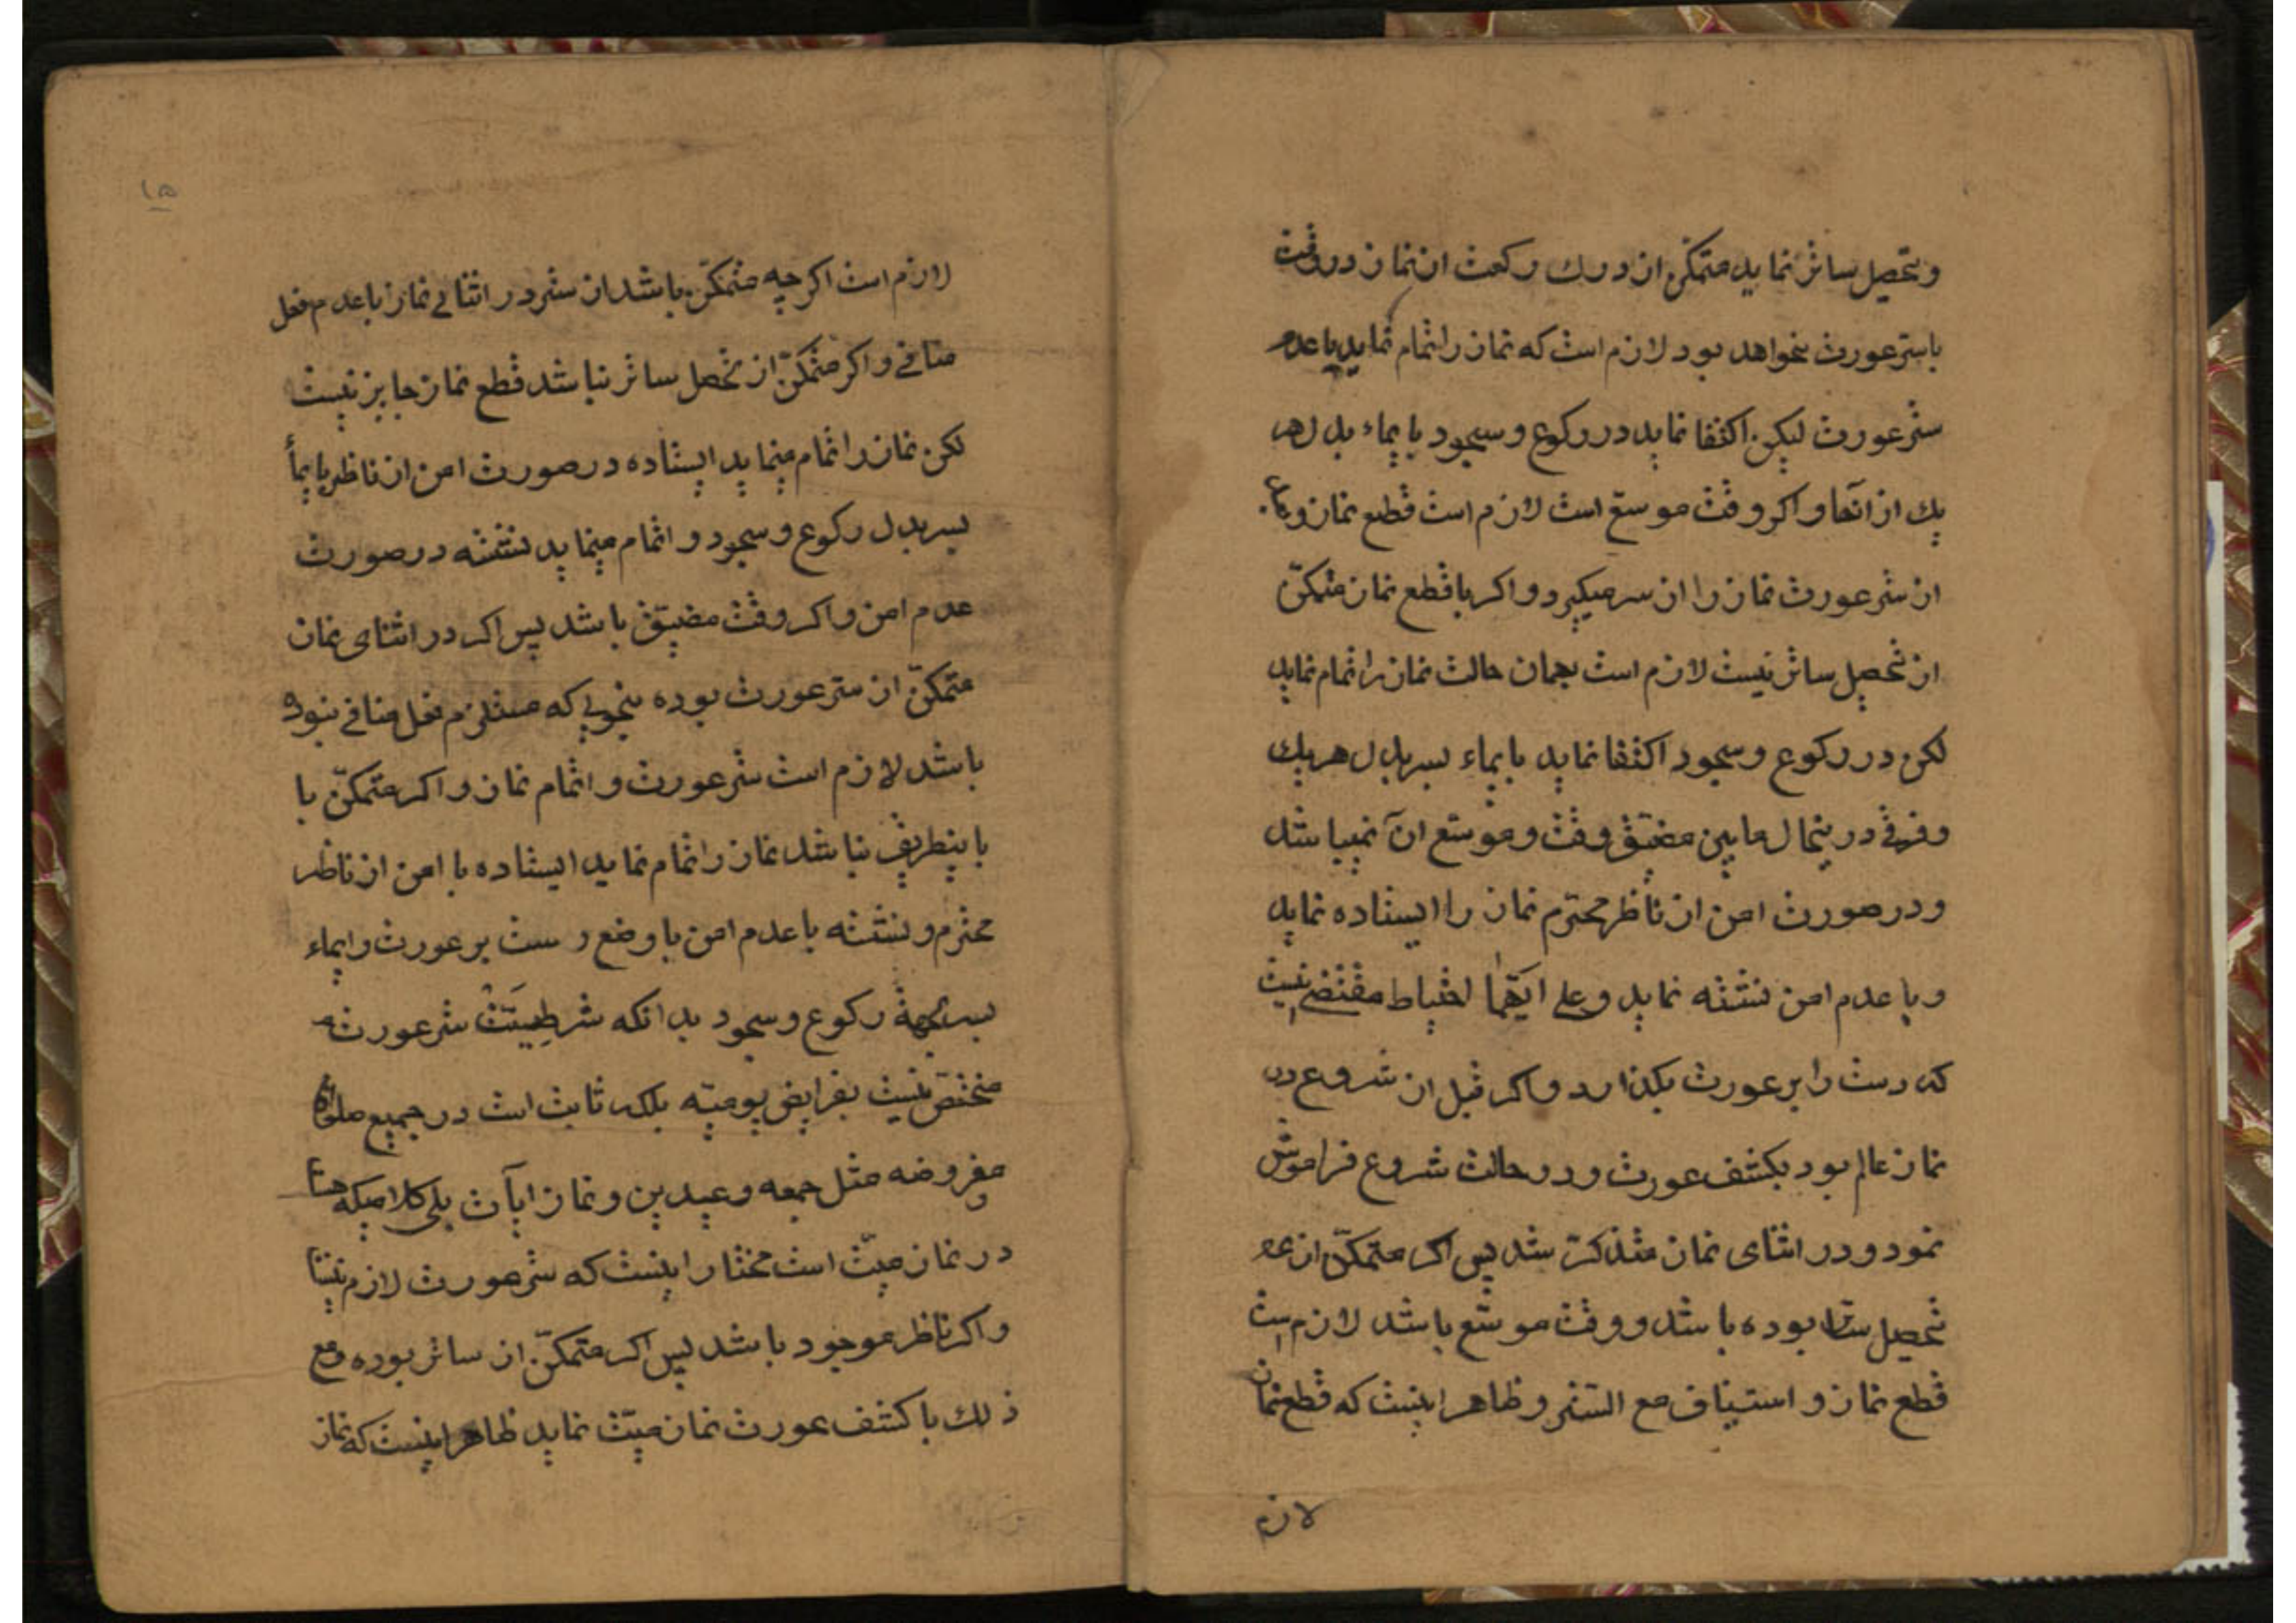 وتحصیل ساتر نماید متمکن از درك ركعت از نماز در وقت
با ستر عورت نخواهد بود لازم است که نماز را تمام نماید با عدم
ستر عورت لیکن اکتفا نماید در رکوع و سجود بایماء بدل هر
یك از آنها و اکر وقت موسع است لازم است قطع نماز و بعد
از ستر عورت نماز را از سر میکیرد و اکر با قطع نماز متمکّن
از تحصیل ساتر نیست لازم است بهمان حالت نماز را تمام نماید
لکن در رکوع و سجود اکتفا نماید بایماء بسر بدل هر یك
و فرقی در ینحال مابین مضیّق وقت و موسّع آن نمیباشد
و در صورت امن از ناظر محترم نماز را ایستاده نماید
و با عدم امن نشسته نماید و علی ایّهما احتیاط مقتضی نیست
که دست را بر عورت بکذارد و اکر قبل از شروع در
نماز عالم بود بکشف عورت و در حالت شروع فراموش
نمود و در اثنای نماز متذکّر شد پس اکر متمکّن از
تحصیل ستر بوده باشد و وقت موسّع باشد لازم است
قطع نماز و استیناف مع الستر و ظاهر اینست که قطع نماز
لازم
۱۵
لازم است اکر چه متمکّن باشد از ستر در اثنای نماز با عدم فعل
منافی و اکر متمکّن از تحصل ساتر نباشد قطع نماز جایز نیست
لکن نماز را تمام مینماید ایستاده در صورت امن از ناظر بایمأ
بسر بدل رکوع و سجود و اتمام مینماید نشسته در صورت
عدم امن و اکر وقت مضیّق باشد پس اکر در اثنای نماز
متمکّن از ستر عورت بوده بنحوی که مستلزم فعل منافی نبوده
باشد لازم است ستر عورت و اتمام نماز و اکر متمکّن با
باینطریق نباشد نماز را تمام نماید ایستاده با امن از ناظر
محترم و نشسته با عدم امن با وضع دست بر عورت و ایماء
بسر بجهة رکوع و سجود بدانکه شرطیّت ستر عورت
مختصّ نیست بفرایض یومیّه بلکه ثابت است در جمیع صلوات
مفروضه مثل جمعه و عیدین و نماز ایآت بلی کلامیکه هست
در نماز میّت است مختار اینست که ستر عورت لازم نیست
و اکر ناظر موجود باشد پس اکر متمکّن از ساتر بوده و مع
ذلك با کشف عورت نماز میّت نماید ظاهر اینست که نماز